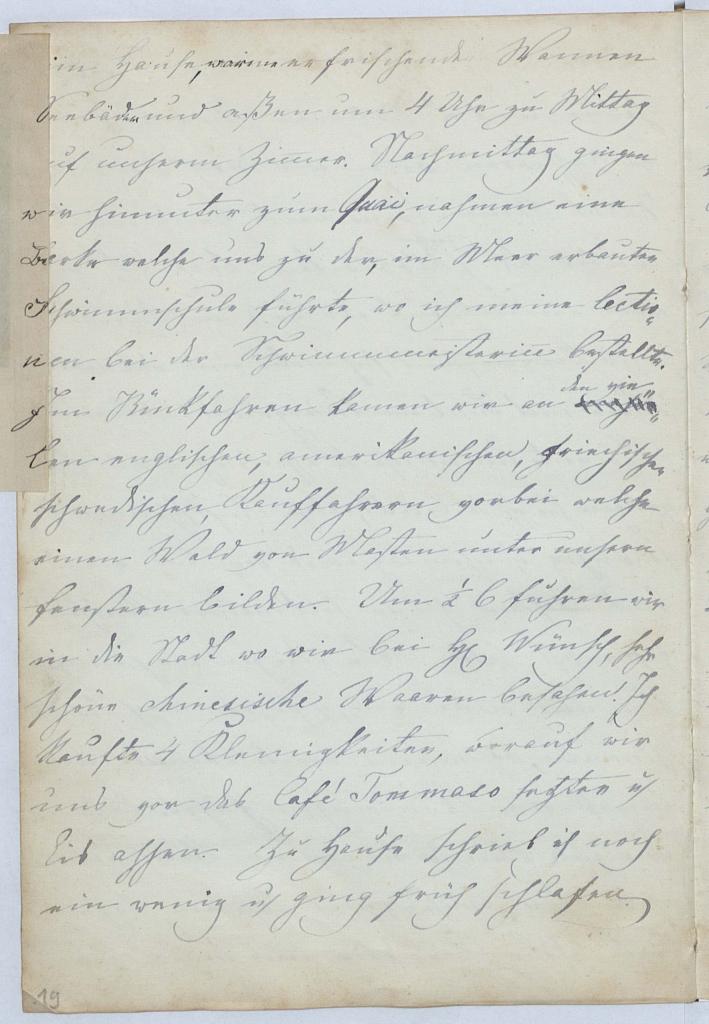 im Hause, warme erfrischende Wannen
Seebäder und aßen um 4 Uhr zu Mittag
auf unserm Zimmer. Nachmittag gingen
wir hinunter zum Quai, nahmen eine
Barke welche uns zu der, im Meer erbauten
Schwimmschule führte, wo ich meine Lectio„
nen bei der Schwimmmeisterin bestellte.
Im Rückfahren kamen wir an den vie„
len englischen, amerikanischen, griechischen
schwedischen, Kauffahrern vorbei welche
einen Wald von Masten unter unsern
Fenstern bilden. Um ½ 6 fuhren wir
in die Stadt wo wir bei Wünsch, sehr
schöne chinesische Waaren besahen. Ich
kaufte 4 Kleinigkeiten, worauf wir
uns vor das Café Tommaso setzten u
Eis assen. Zu Hause schrieb ich noch
ein wenig u ging früh schlafen.
19